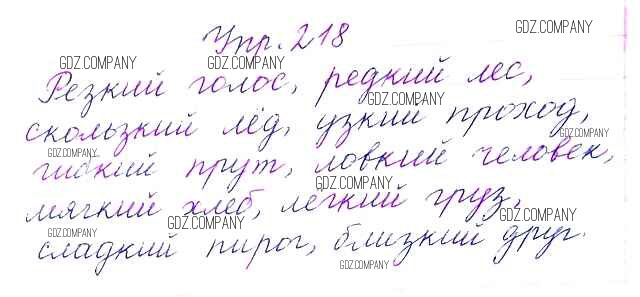 Упр. 218
Резкий голос, редкий лес,
скользкий лёд, узкий проход,
гибкий прут, ловкий человек,
мягкий хлеб, легкий груз,
сладкий пирог, близкий друг.
GDZ.COMPANY
GDZ.COMPANY
GDZ.COMPANY
GDZ.COMPANY
GDZ.COMPANY
GDZ.COMPANY
GDZ.COMPANY
GDZ.COMPANY
GDZ.COMPANY
GDZ.COMPANY
GDZ.COMPANY